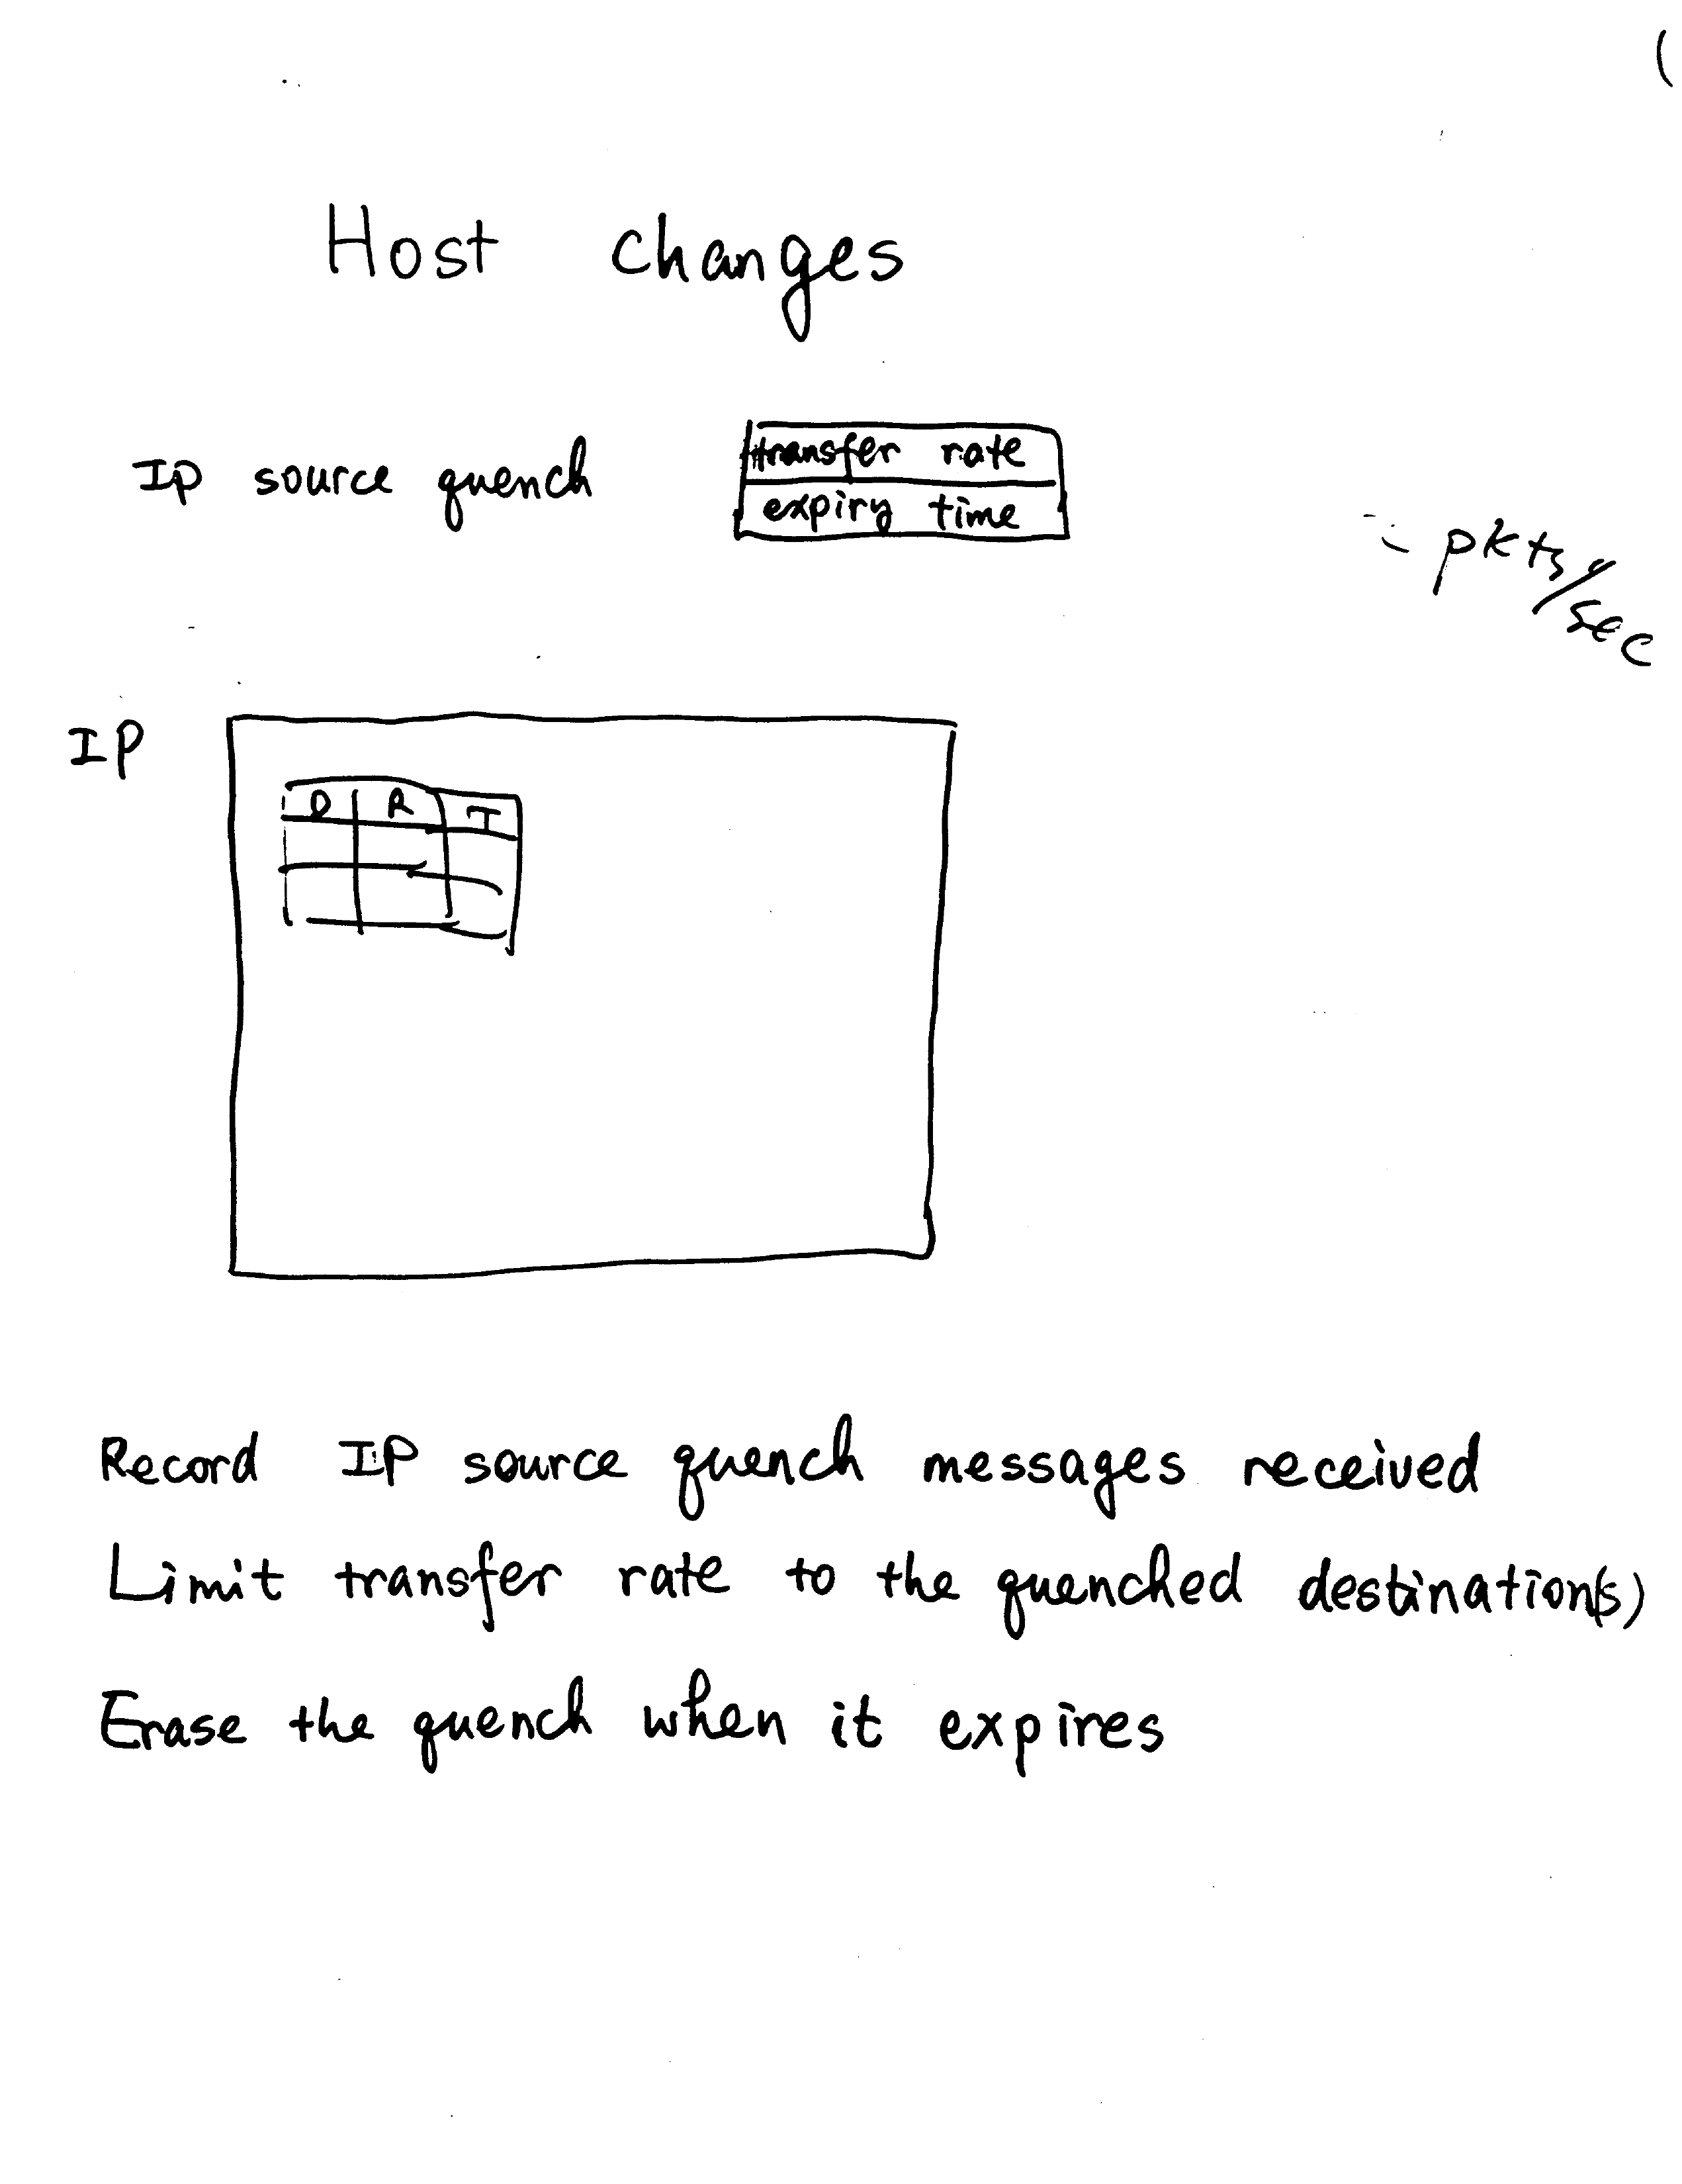 Host changes
IP source quench
transfer rate
expiry time
= pkts/sec
IP
D R T
Record IP source quench messages received
Limit transfer rate to the quenched destination(s)
Erase the quench when it expires